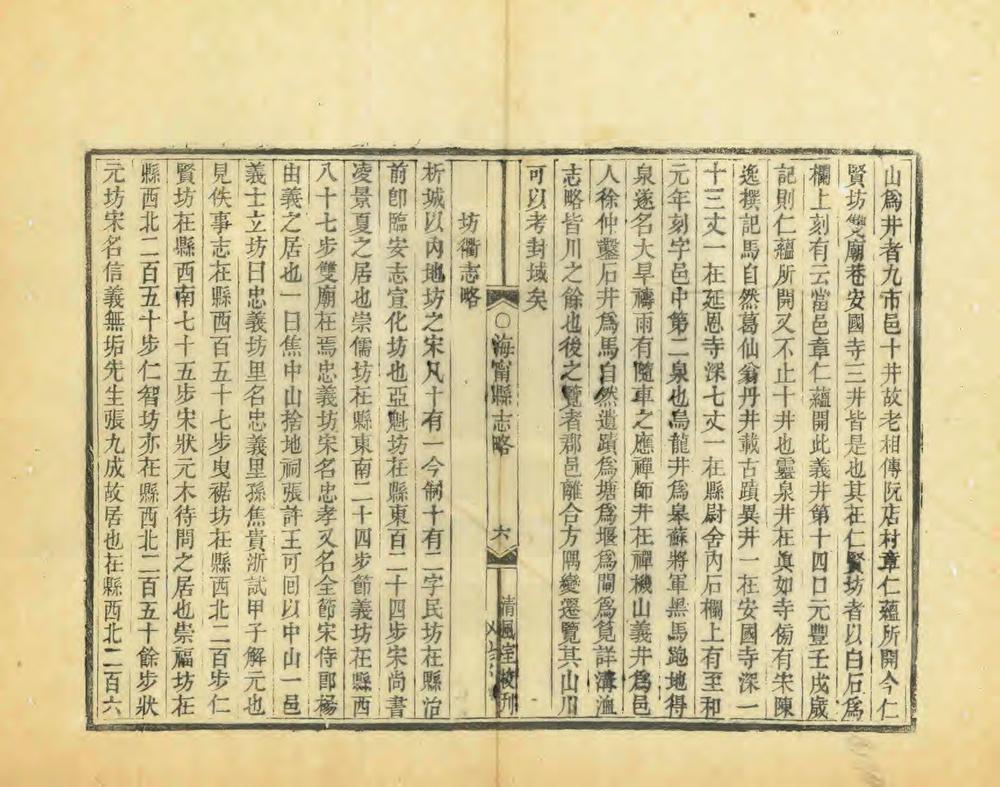 山爲井者九市邑十井故老相傳阮店村章仁蘊所開今仁
賢坊雙廟巷安國寺三井皆是也其在仁賢坊者以白石爲
欄上刻有云當邑章仁蘊開此義井第十四口元豐壬戌歲
記則仁蘊所開又不止十井也靈泉井在眞如寺傍有宋陳
逸撰記馬自然葛仙翁丹井載古蹟異井一在安國寺深一
十三丈一在延恩寺深七丈一在縣尉舍內石欄上有至和
元年刻字邑中第二泉也烏龍井爲皋蘇將軍黑馬跑地得
泉遂名大旱禱雨有隨車之應禪師井在禪機山義井爲邑
人徐仲鑿石井爲馬自然遺蹟爲塘爲堰爲閘爲筧詳溝洫
志略皆川之餘也後之覽者郡邑離合方隅變遷覽其山川
可以考封域矣
坊衢志略
海甯縣志略
六
清風室校刊
析城以內地坊之宋凡十有一今制十有二字民坊在縣治
前卽臨安志宣化坊也亞魁坊在縣東百二十四步宋尚書
凌景夏之居也崇儒坊在縣東南二十四步節義坊在縣西
八十七步雙廟在焉忠義坊宋名忠孝又名全節宋侍郎楊
由義之居也一曰焦中山捨地祠張許王可囘以中山一邑
義士立坊曰忠義坊里名忠義里孫焦貴浙試甲子解元也
見佚事志在縣西百五十七步曳裾坊在縣西北二百步仁
賢坊在縣西南七十五步宋狀元木待問之居也崇福坊在
縣西北二百五十步仁智坊亦在縣西北二百五十餘步狀
元坊宋名信義無垢先生張九成故居也在縣西北二百六